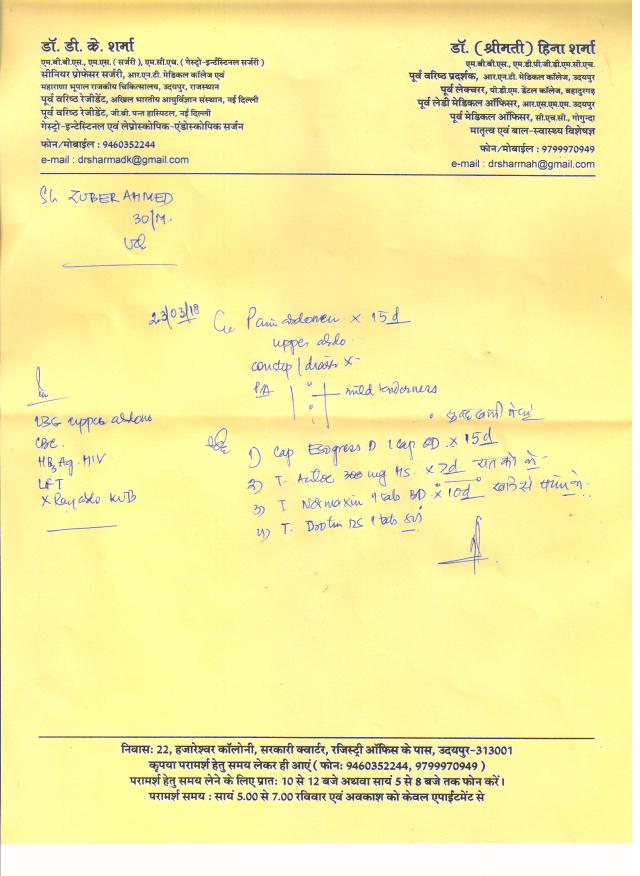 डॉ. डी. के. शर्मा
एम.बी.बी.एस., एम.एस. ( सर्जरी ), एम.सी.एच. ( गेस्ट्रो-इन्टेस्टिनल सर्जरी )
सीनियर प्रोफेसर सर्जरी, आर.एन.टी. मेडिकल कॉलेज एवं
महाराणा भूपाल राजकीय चिकित्सालय, उदयपुर, राजस्थान
पूर्व वरिष्ठ रेजीडेंट, अखिल भारतीय आयुर्विज्ञान संस्थान, नई दिल्ली
पूर्व वरिष्ठ रेजीडेंट, जी.बी. पन्त हास्पिटल, नई दिल्ली
गेस्ट्रो-इन्टेस्टिनल एवं लेप्रोस्कोपिक-एंडोस्कोपिक सर्जन
फोन/मोबाईल : 9460352244
e-mail : drsharmadk@gmail.com
डॉ. (श्रीमती) हिना शर्मा
एम.बी.बी.एस., एम.डी.पी.जी.डी.एम.सी.एच.
पूर्व वरिष्ठ प्रदर्शक, आर.एन.टी. मेडिकल कॉलेज, उदयपुर
पूर्व लेक्चरर, पी.डी.एम. डेंटल कॉलेज, बहादुरगढ़
पूर्व लेडी मेडिकल ऑफिसर, आर.एस.एम.एम. उदयपुर
पूर्व मेडिकल ऑफिसर, सी.एच.सी., गोगुन्दा
मातृत्व एवं बाल-स्वास्थ्य विशेषज्ञ
फोन/मोबाईल : 9799970949
e-mail : drsharmah@gmail.com
Sh ZUBER AHMED
30/M.
23/03/18 C/o Pain abdomen x 15d
upper abdo
constip
PA mild tenderness
USG upper abdomen
CBC.
HBsAg. HIV
LFT
X Ray abdo KUB
1) Cap D 1 cap OD. x 15d
2) T. 300 mg HS. x 7d रात को ले
3) T. Normaxin 1 tab BD x 10d खाने से पहले ले
4) T. DS 1 tab
निवास: 22, हजारेश्वर कॉलोनी, सरकारी क्वार्टर, रजिस्ट्री ऑफिस के पास, उदयपुर-313001
कृपया परामर्श हेतु समय लेकर ही आएं ( फोन: 9460352244, 9799970949 )
परामर्श हेतु समय लेने के लिए प्रातः 10 से 12 बजे अथवा सायं 5 से 8 बजे तक फोन करें।
परामर्श समय : सायं 5.00 से 7.00 रविवार एवं अवकाश को केवल एपाईंटमेंट से